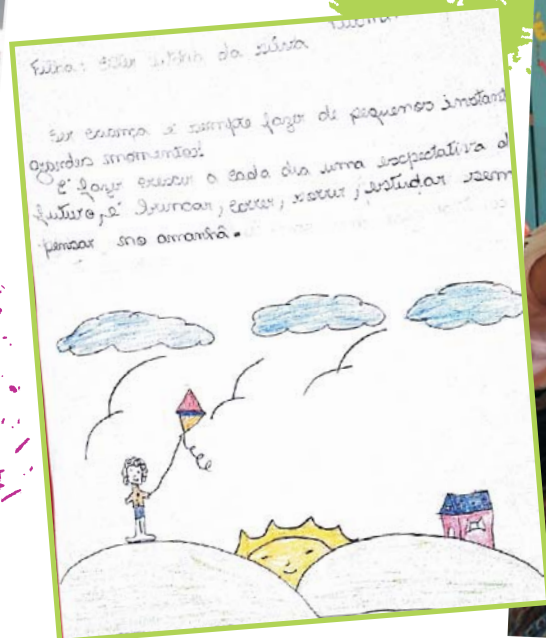 Filha: Ester da silva
Ser criança é sempre fazer de pequenos instant
grandes momentos!
É fazer crescer a cada dia uma expectativa d
futuro, é brincar, correr, sorrir, estudar sem
pensar no amanhã.